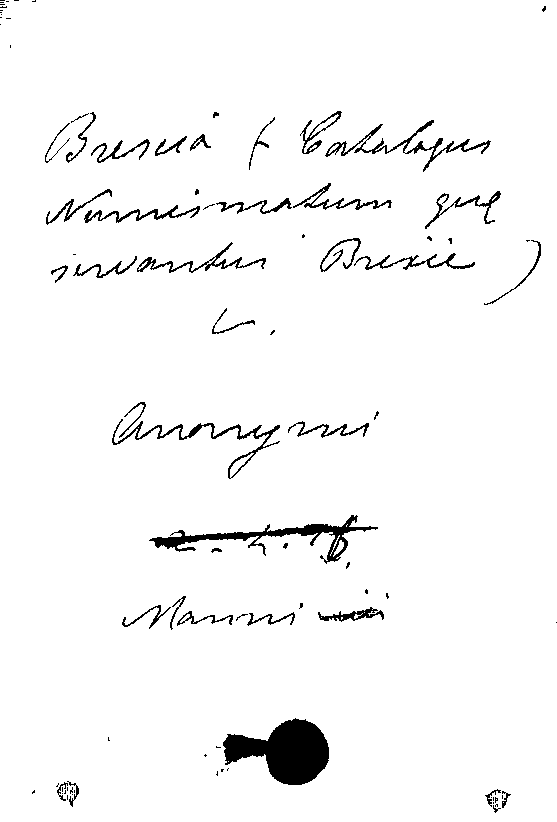 Brescia ( Catalogus
Numismatum quę
servantur Brexię )
v.
Anonymi
Manni